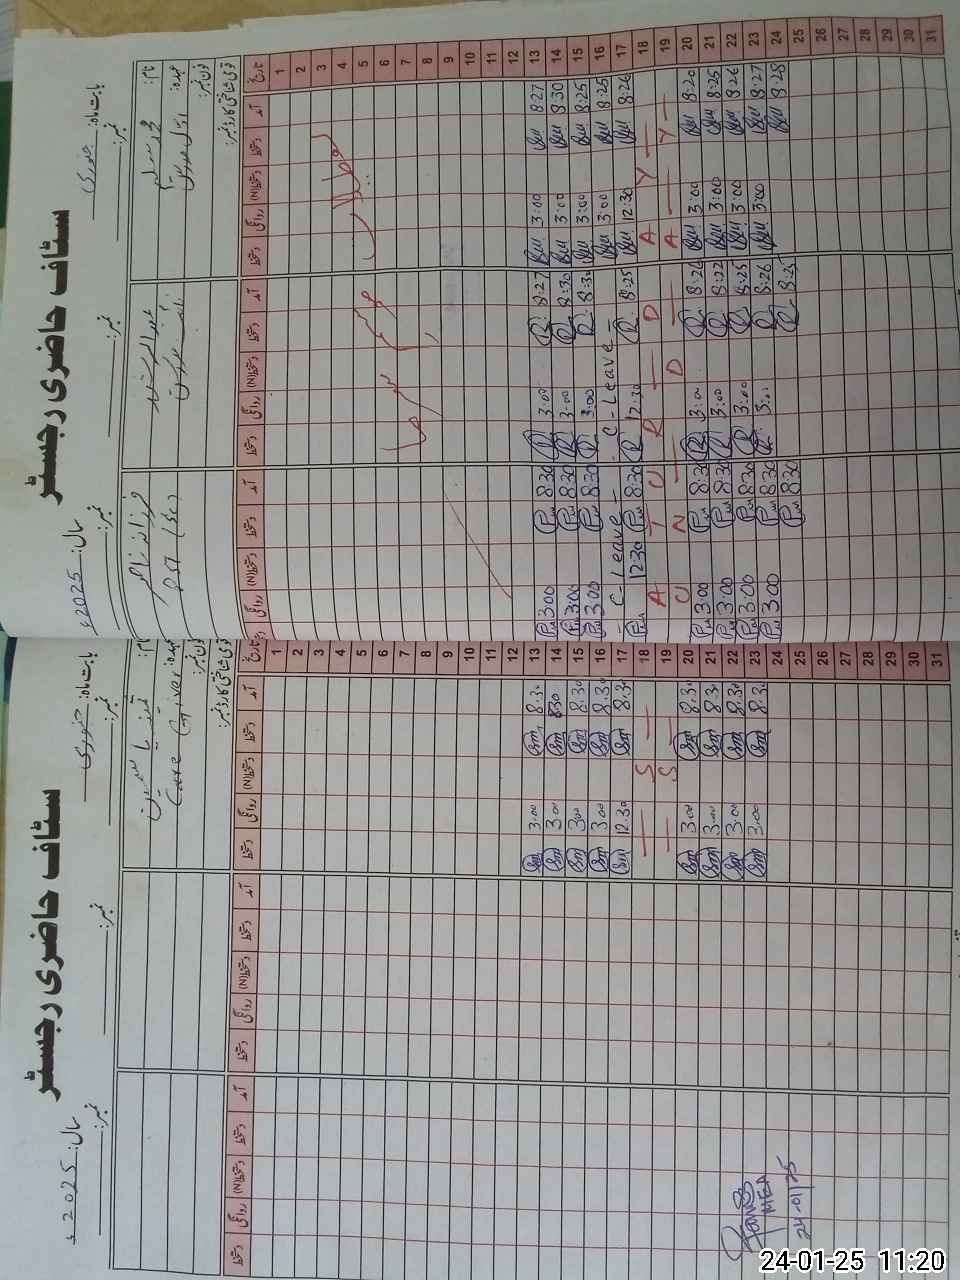 سٹاف حاضری رجسٹر
سال: 2025ء
بابت ماہ: جنوری
نمبر: نمبر: نمبر:
نام:
عہدہ:
فون نمبر:
قومی شناختی کارڈ نمبر:
تاریخ آمد دستخط دستخط(N) روانگی دستخط آمد دستخط دستخط(N) روانگی دستخط آمد دستخط دستخط(N) روانگی
1
2
3
4
5
6
7
8
9
10
11
12
13 8:27 3:00 8:27 3:00 8:30 3:00
14 8:30 3:00 8:30 3:00 8:30 3:00
15 8:25 3:00 8:30 3:00 8:30 3:00
16 8:25 3:00 - C - Leave - - C - Leave -
17 8:26 12:30 8:25 12:30 8:30 12:30
18 Y A D R U T A
19 Y A D N U
20 8:20 3:00 3:00 8:30 3:00
21 8:25 3:00 8:22 3:00 8:30 3:00
22 8:26 3:00 8:25 3:00 8:30 3:00
23 8:27 3:00 8:26 3:00 8:30 3:00
24 8:28 8:25 8:30
25
26
27
28
29
30
31
سٹاف حاضری رجسٹر
سال: 2025ء
بابت ماہ: جنوری
نمبر: نمبر: نمبر:
نام:
عہدہ: Care Giver
فون نمبر:
قومی شناختی کارڈ نمبر:
تاریخ آمد دستخط دستخط(N) روانگی دستخط آمد دستخط دستخط(N) روانگی دستخط آمد دستخط دستخط(N) روانگی دستخط
1
2
3
4
5
6
7
8
9
10
11
12
13 8:30 3:00
14 8:30 3:00
15 8:30 3:00
16 8:30 3:00
17 8:30 12:30
18 S
19 S
20 8:30 3:00
21 8:30 3:00
22 8:30 3:00
23 8:30 3:00
24
25
26
27
28
29
30
31
MEA
24-01-25
24-01-25 11:20